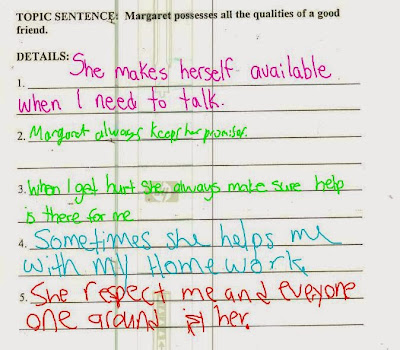 TOPIC SENTENCE: Margaret possesses all the qualities of a good
friend.
DETAILS:
1. She makes herself available
when I need to talk.
2. Margaret always keeps her promises.
3. When I get hurt she always make sure help
is there for me
4. Sometimes she helps me
with my Homework.
5. She respect me and everyone
one around her.